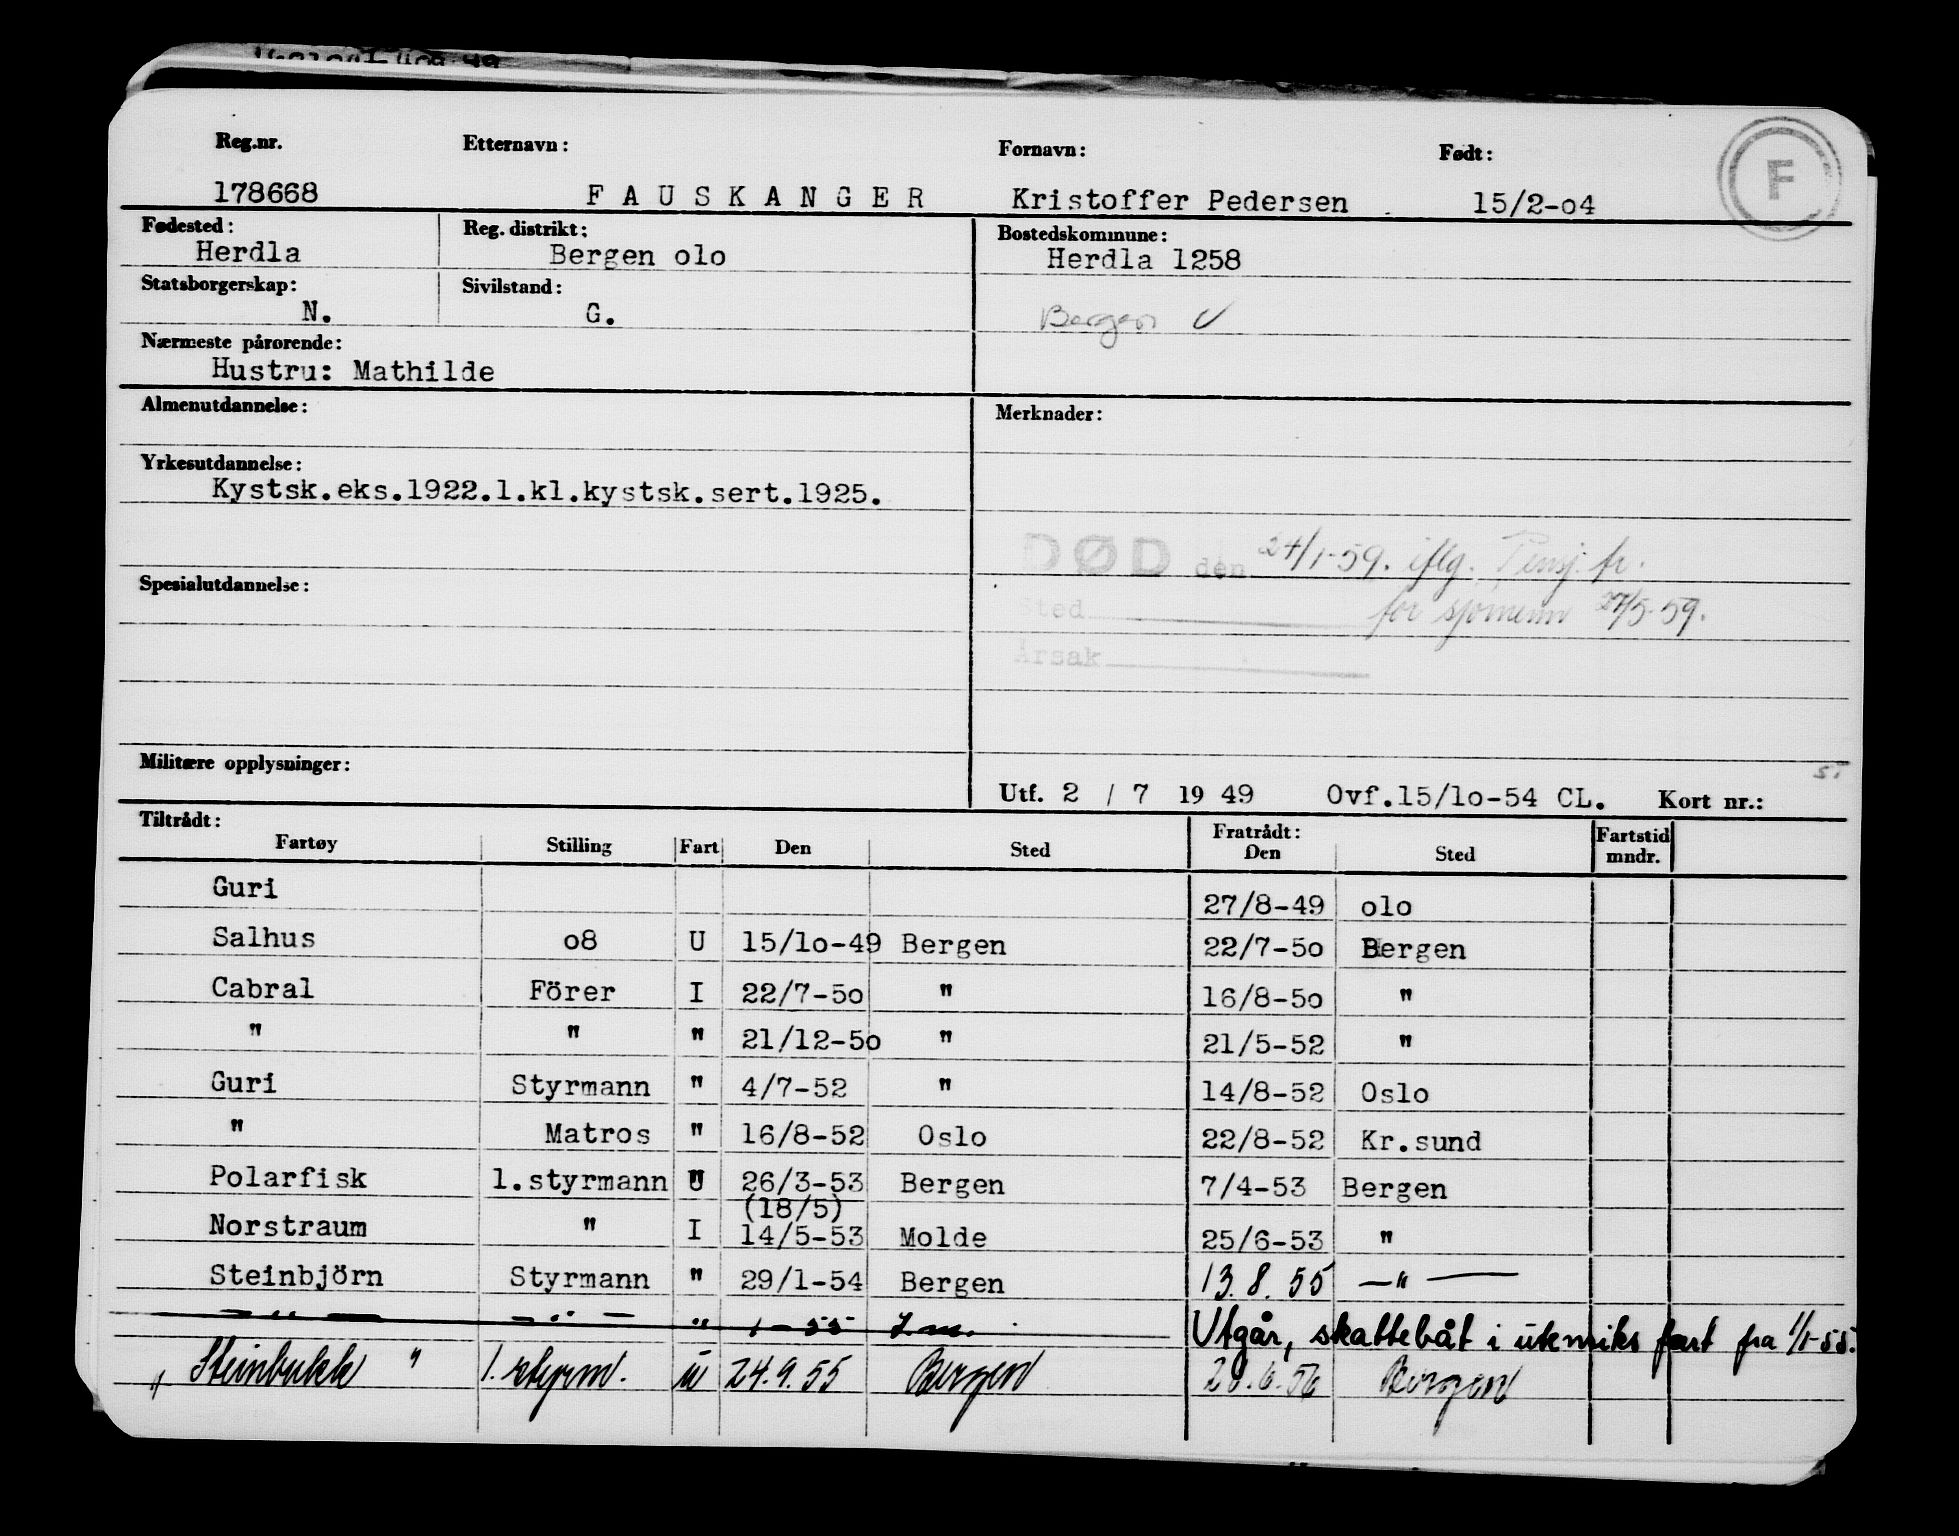 Reg.nr. Etternavn: Fornavn: Født: F
178668 FAUSKANGER Kristoffer Pedersen 15/2-o4
Fødested: Reg. distrikt: Bostedskommune:
Herdla Bergen olo Herdla 1258
Statsborgerskap: Sivilstand:
N. G. Bergen
Nærmeste pårørende:
Hustru: Mathilde
Almenutdannelse: Merknader:
Yrkesutdannelse:
Kystsk.eks.1922.1.kl.kystsk.sert.1925.
DØD den 24/1-59. iflg. Pensj. tr.
Spesialutdannelse:
Sted for sjömenn 27/5-59.
Årsak
Militære opplysninger:
Utf. 2 / 7 19 49 Ovf.15/lo-54 CL. Kort nr.:
Tiltrådt: Fratrådt: Fartstid
Fartøy Stilling Fart Den Sted Den Sted mndr.
Guri 27/8-49 olo
Salhus o8 U 15/lo-49 Bergen 22/7-5o Bergen
Cabral Förer I 22/7-5o " 16/8-5o "
" " " 21/12-5o " 21/5-52 "
Guri Styrmann " 4/7-52 " 14/8-52 Oslo
" Matros " 16/8-52 Oslo 22/8-52 Kr.sund
Polarfisk 1.styrmann U 26/3-53 Bergen 7/4-53 Bergen
(18/5)
Norstraum " I 14/5-53 Molde 25/6-53 "
Steinbjörn Styrmann " 29/1-54 Bergen 13.8.55 —"—
—"— —"— " 1-55 Utgår, skattebåt i utenriks fart fra 1/1-55.
" Steinbukk " 1. styrm. u 24.9.55 Bergen 28.6.56 Bergen